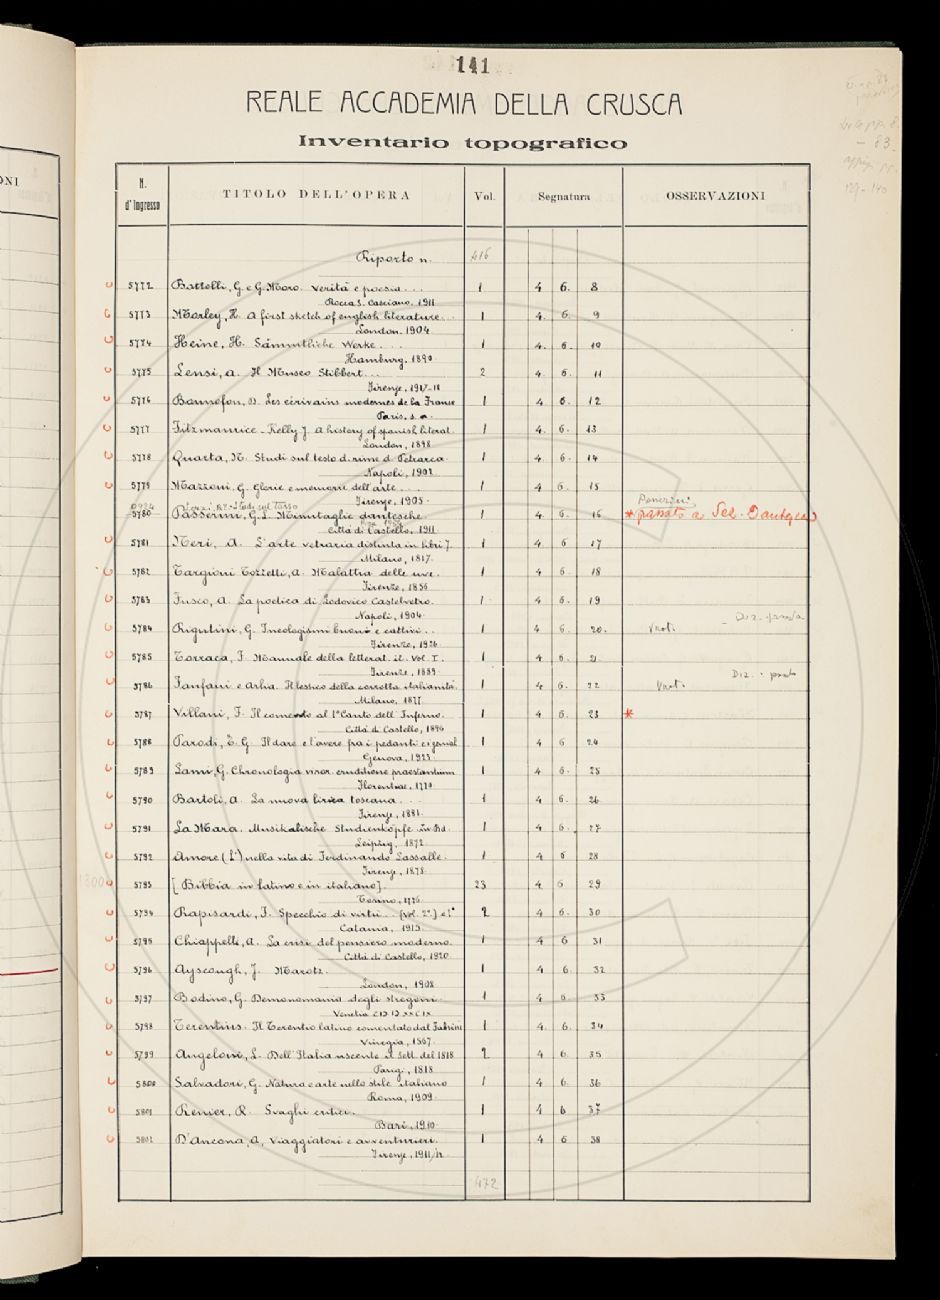 141
REALE ACCADEMIA DELLA CRUSCA
Inventario topografico
N. d'Ingresso TITOLO DELL'OPERA Vol. Segnatura OSSERVAZIONI
Riporto n. 416
5772 Battelli, G. e G. Moro. Verità e poesia... 1 4 6. 8
Rocca S. Casciano, 1911
5773 Morley, H. A first sketch of english literature... 1 4. 6. 9
London, 1904
5774 Heine, H. Sämmtliche Werke... 1 4. 6. 10
Hamburg, 1890
5775 Lensi, A. Il Museo Stibbert... 2 4. 6. 11
Firenze, 1917-18
5776 Les écrivains modernes de la France 1 4 6. 12
Paris, s. a.
5777 Fitzmaurice-Kelly J. A history of spanish literat. 1 4. 6. 13
London, 1898
5778 Quarta, N. Studi sul testo d. rime d. Petrarca. 1 4 6. 14
Napoli, 1902
5779 Mazzoni, G. Glorie e memorie dell'arte... 1 4 6. 15
Firenze, 1905.
5780 Passerini, G. L. Minutaglie dantesche. 1 4 6. 16 * passato a Sez. Dantesca
Città di Castello, 1911
5781 Neri, A. L'arte vetraria distinta in libri 7. 1 4 6 17
Milano, 1817.
5782 Targioni Tozzetti, A. Malattia delle uve. 1 4 6 18
Firenze, 1856
5783 Fusco, A. La poetica di Lodovico Castelvetro. 1 4 6. 19
Napoli, 1904
5784 Rigutini, G. I neologismi buoni e cattivi... 1 4 6. 20.
Firenze, 1926
5785 Torraca, F. Manuale della letterat. it. Vol. I. 1 4 6. 21
Firenze, 1889.
5786 Fanfani e Arlia. Il lessico della corrotta italianità. 1 4 6. 22
Milano, 1877.
5787 Villani, F. Il comento al 1º Canto dell'Inferno. 1 4 6. 23 *
Città di Castello, 1896
5788 Parodi, E. G. Il dare e l'avere fra i pedanti e i geniali 1 4 6 24
Genova, 1923.
5789 Lami, G. Chronologia viror. eruditione praestantium 1 4 6. 25
Florentiae, 1770
5790 Bartoli, A. La nuova lirica toscana... 1 4 6. 26
Firenze, 1881.
5791 La Mara. Musikalische Studienköpfe. 1 4 6. 27
Leipzig, 1872
5792 Amore (L') nella vita di Ferdinando Lassalle. 1 4 6 28
Firenze, 1878.
5793 [Bibbia in latino e in italiano]. 23 4 6 29
Torino, 1776
5794 Rapisardi, F. Specchio di virtù... (vol. 2º.) e 1º 2 4 6. 30
Catania, 1915.
5795 Chiappelli, A. La crisi del pensiero moderno. 1 4 6 31
Città di Castello, 1920.
5796 Ayscough, J. Marotz. 1 4 6. 32
London, 1908
5797 Bodino, G. Demonomania degli stregoni. 1 4 6. 33
Venetia
5798 Terentius. Il Terentio latino comentato dal Fabrini 1 4. 6. 34
Vinegia, 1567.
5799 Angeloni, L. Dell'Italia uscente il Sett. del 1818 2 4 6. 35
Parigi, 1818
5800 Salvadori, G. Natura e arte nello stile italiano 1 4 6. 36
Roma, 1909.
5801 Renier, R. Svaghi critici. 1 4 6 37
Bari, 1910
5802 D'Ancona, A. Viaggiatori e avventurieri. 1 4 6 38
Firenze, 1911/12
472